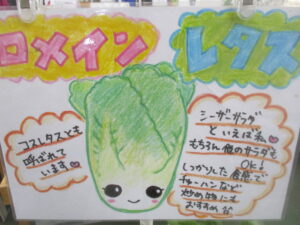 ロメイン
レタス
コスレタスとも
呼ばれて
います
シーザーサラダ
といえば
もちろん他のサラダも
OK!
しっかりした食感で
チャーハンなど
炒め物にも
おすすめ